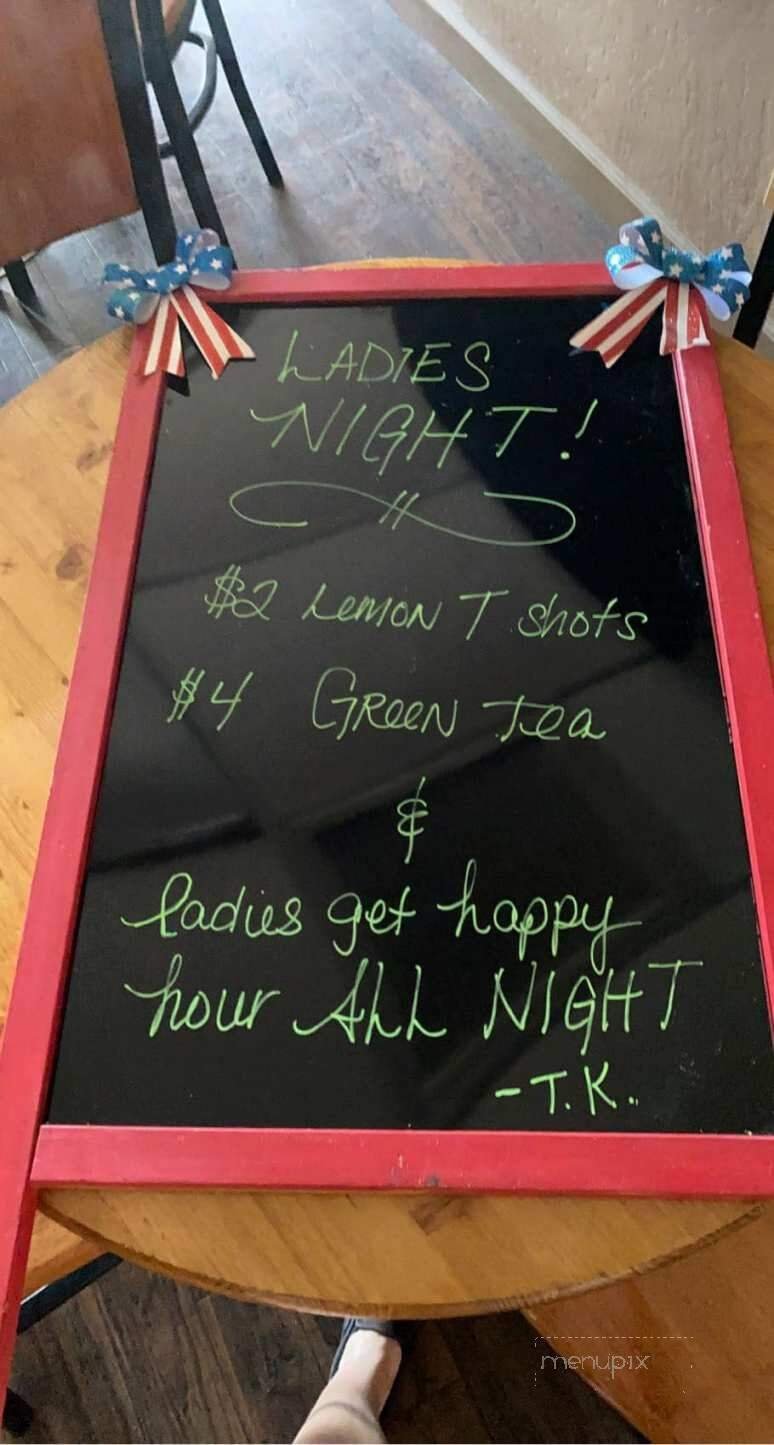 LADIES
NIGHT!
$2 Lemon T shots
$4 GReeN Tea
&
ladies get happy
hour ALL NIGHT
-T.K.
menupix